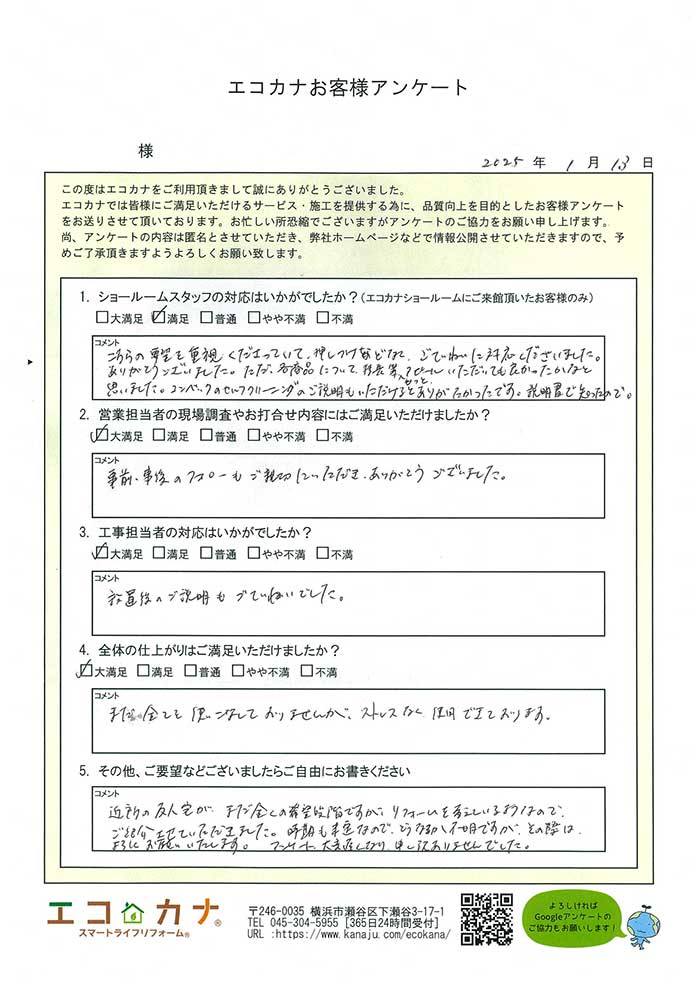 エコカナお客様アンケート
様
2025 年 1 月 13 日
この度はエコカナをご利用頂きまして誠にありがとうございました。
エコカナでは皆様にご満足いただけるサービス・施工を提供する為に、品質向上を目的としたお客様アンケート
をお送りさせて頂いております。お忙しい所恐縮でございますがアンケートのご協力をお願い申し上げます。
尚、アンケートの内容は匿名とさせていただき、弊社ホームページなどで情報公開させていただきますので、予
めご了承頂きますようよろしくお願い致します。
1. ショールームスタッフの対応はいかがでしたか？(エコカナショールームにご来館頂いたお客様のみ)
□大満足 ☑満足 □普通 □やや不満 □不満
コメント
こちらの要望を重視くださっていて、押しつけなどなく、ごていねいに対応くださいました。
ありがとうございました。ただ、各商品について、特長等、もっとアピールいただいても良かったかなと
思いました。コンベックのセルフクリーニングのご説明もいただけるとありがたかったです。説明書で知ったので。
2. 営業担当者の現場調査やお打合せ内容にはご満足いただけましたか？
☑大満足 □満足 □普通 □やや不満 □不満
コメント
事前、事後のフォローもご親切にいただき、ありがとうございました。
3. 工事担当者の対応はいかがでしたか？
☑大満足 □満足 □普通 □やや不満 □不満
コメント
設置後のご説明もごていねいでした。
4. 全体の仕上がりはご満足いただけましたか？
☑大満足 □満足 □普通 □やや不満 □不満
コメント
まだ全てを使いこなしておりませんが、ストレスなく使用できております。
5. その他、ご要望などございましたらご自由にお書きください
コメント
近所の友人宅が、まだ全くの希望段階ですが、リフォームを考えているようなので、
ご紹介させていただきました。時期も未定なので、どうなるか不明ですが、その際は、
よろしくお願いいたします。アンケート、大変遅くなり、申し訳ありませんでした。
エコカナ®
スマートライフリフォーム®
〒246-0035 横浜市瀬谷区下瀬谷3-17-1
TEL 045-304-5955 [365日24時間受付]
URL :https://www.kanaju.com/ecokana/
よろしければ
Googleアンケートの
ご協力もお願いします！